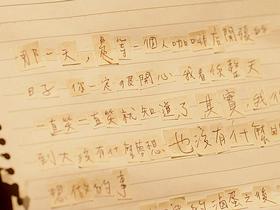 那一天,是等一個人咖啡店開張的
日子 你一定很開心 我看你整天
一直笑一直笑就知道了 其實,我
到大沒有什麼夢想 也沒有什麼
想做的事
的滷蛋之後